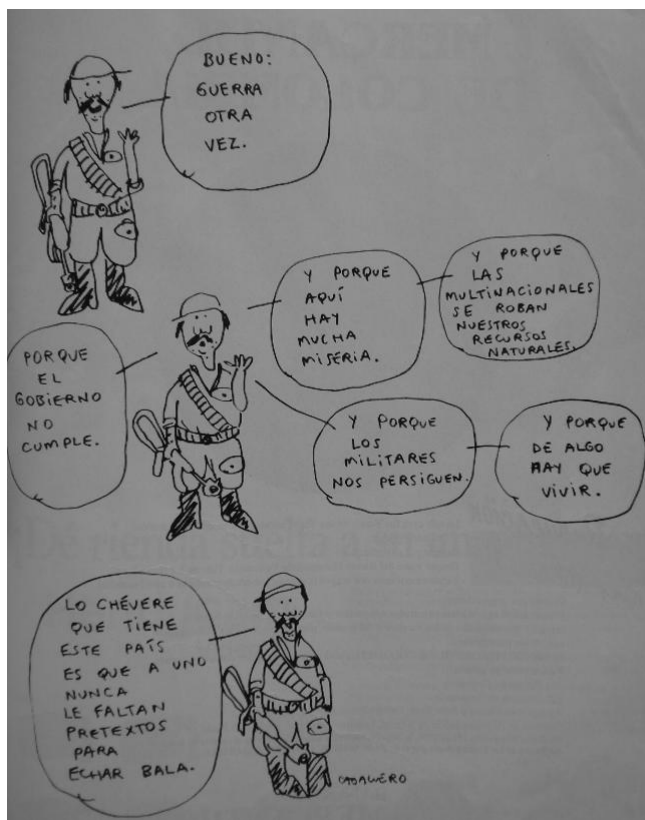 BUENO:
GUERRA
OTRA
VEZ.
PORQUE
EL
GOBIERNO
NO
CUMPLE.
Y PORQUE
AQUÍ
HAY
MUCHA
MISERIA.
Y PORQUE
LAS
MULTINACIONALES
SE ROBAN
NUESTROS
RECURSOS
NATURALES.
Y PORQUE
LOS
MILITARES
NOS PERSIGUEN.
Y PORQUE
DE ALGO
HAY QUE
VIVIR.
LO CHÉVERE
QUE TIENE
ESTE PAÍS
ES QUE A UNO
NUNCA
LE FALTAN
PRETEXTOS
PARA
ECHAR BALA.
CABALLERO